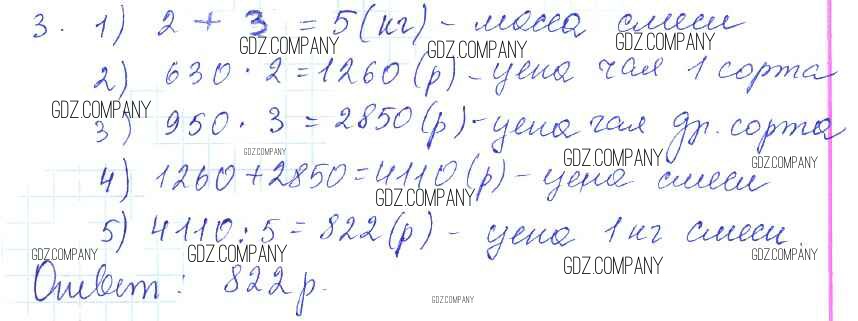 3. 1) 2 + 3 = 5 (кг) - масса смеси
GDZ.COMPANY GDZ.COMPANY GDZ.COMPANY
2) 630 · 2 = 1260 (р) - цена чая 1 сорта
GDZ.COMPANY
3) 950 · 3 = 2850 (р) - цена чая др. сорта
GDZ.COMPANY GDZ.COMPANY
4) 1260 + 2850 = 4110 (р) - цена смеси
GDZ.COMPANY
5) 4110 : 5 = 822 (р) - цена 1 кг смеси.
GDZ.COMPANY GDZ.COMPANY GDZ.COMPANY
Ответ: 822 р.
GDZ.COMPANY